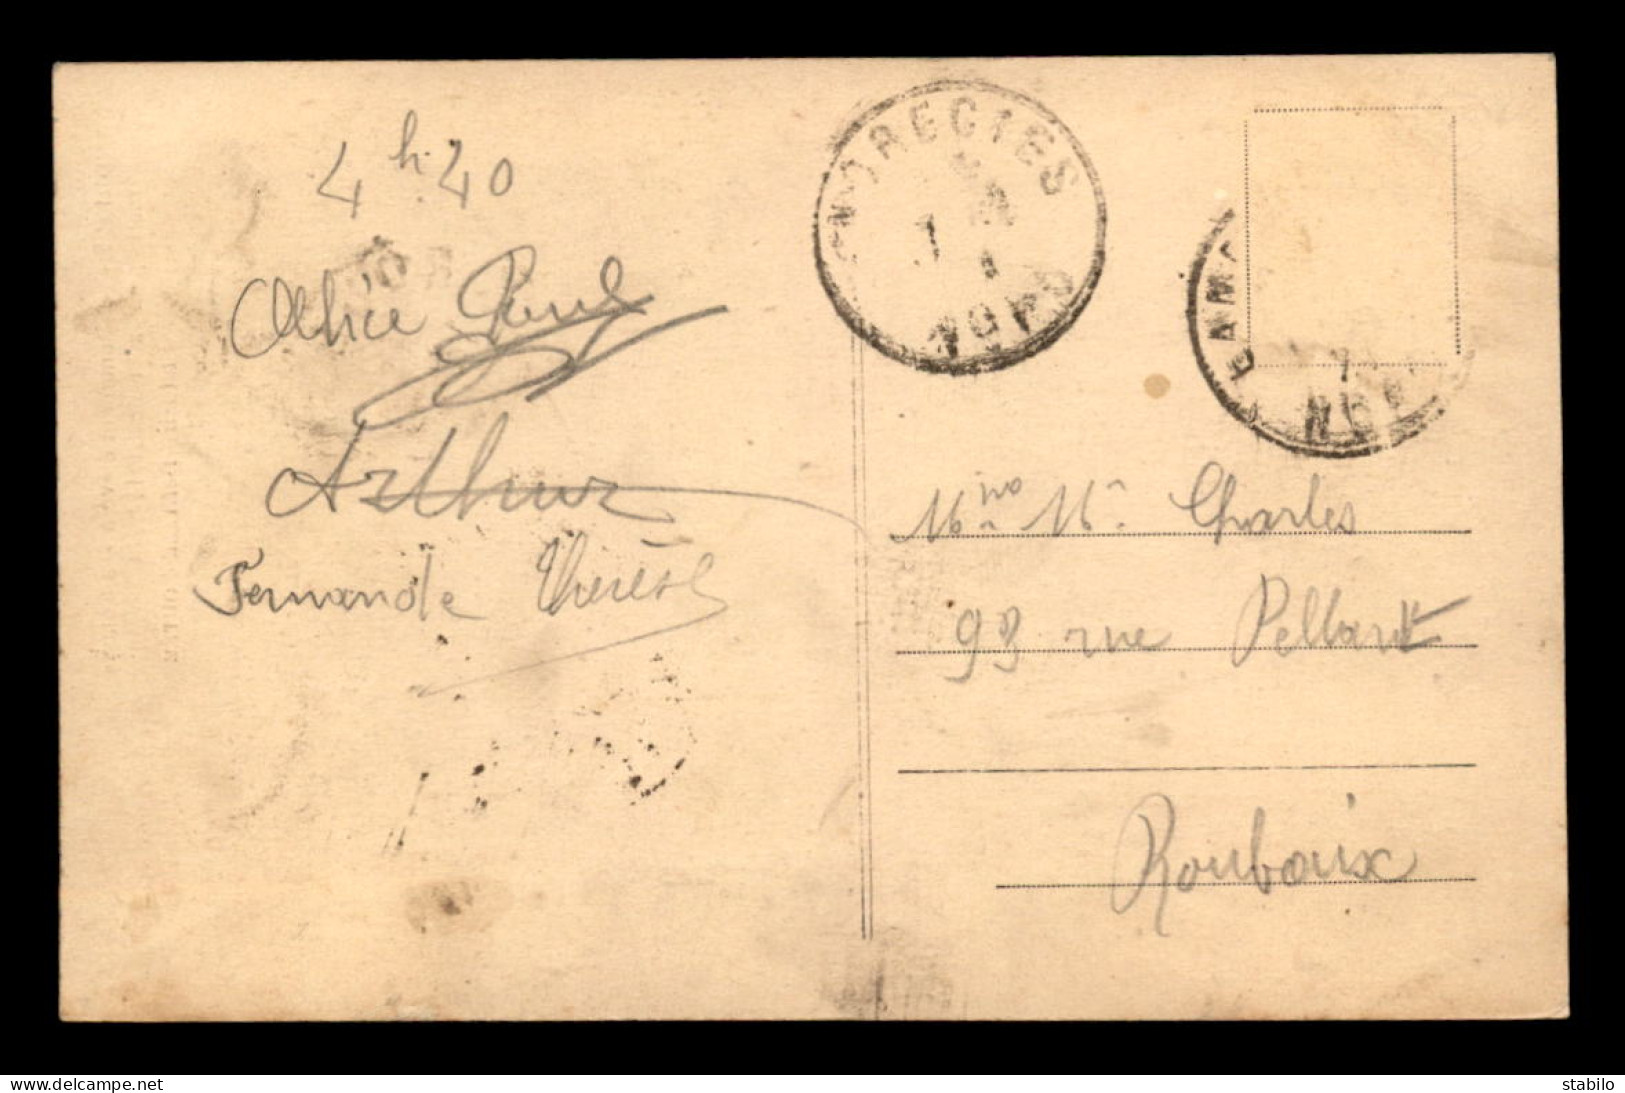 4h.40
Alice Paul
Arthur
Fernande Thérèse
NORD
NORD
Mr Charles
93 rue Pellart
Roubaix
delcampe.net
stabilo